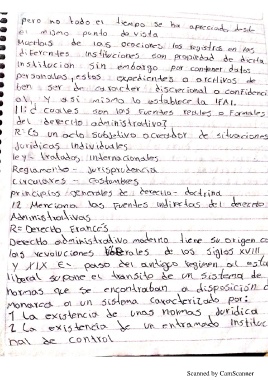 pero no todo el tiempo se ha apreciado desde
el mismo punto de vista
Muchas de las ocaciones los registros en las
diferentes instituciones son propiedad de dicha
institucion sin embargo por contener datos
personales, estos expedientes a archivos de
ben ser de caracter discrecional o confidenci
al, Y asi mismo lo establece la IFAI.
11: ¿ cuales son las fuentes reales o formales
del derecho administrativo?
R= Es un acto subjetivo acreedor de situaciones
juridicas individuales.
ley - tratados internacionales
Reglamento - Jurisprudencia
Circulares - Costumbres
principios generales de derecho - doctrina
12 Menciona las fuentes indirectas del derecho
Administrativas
R= Derecho Francés
Derecho administrativo moderno tiene su origen en
las revoluciones liberales de los siglos XVIII
y XIX El paso del antiguo regimen al esta
liberal supone el transito de un sistema de
normas que se encontraban a disposición d
Monarca a un sistema caracterizado por:
1 La existencia de unas normas Juridica
2 La existencia de un entramado Instituc
nal de control
Scanned by CamScanner